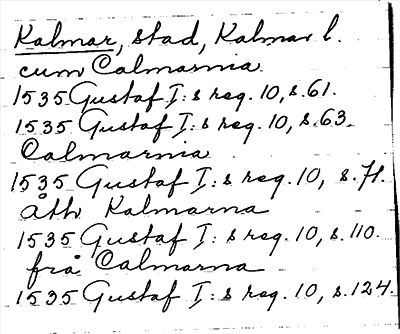 Kalmar, stad, Kalmar l.
cum Calmarnia
1535 Gustaf I:s reg. 10, s. 61.
1535 Gustaf I:s reg. 10, s. 63.
Calmarnia
1535 Gustaf I:s reg. 10, s. 71.
åth Kalmarna
1535 Gustaf I:s reg. 10, s. 110.
frå Calmarna
1535 Gustaf I:s reg. 10, s. 124.